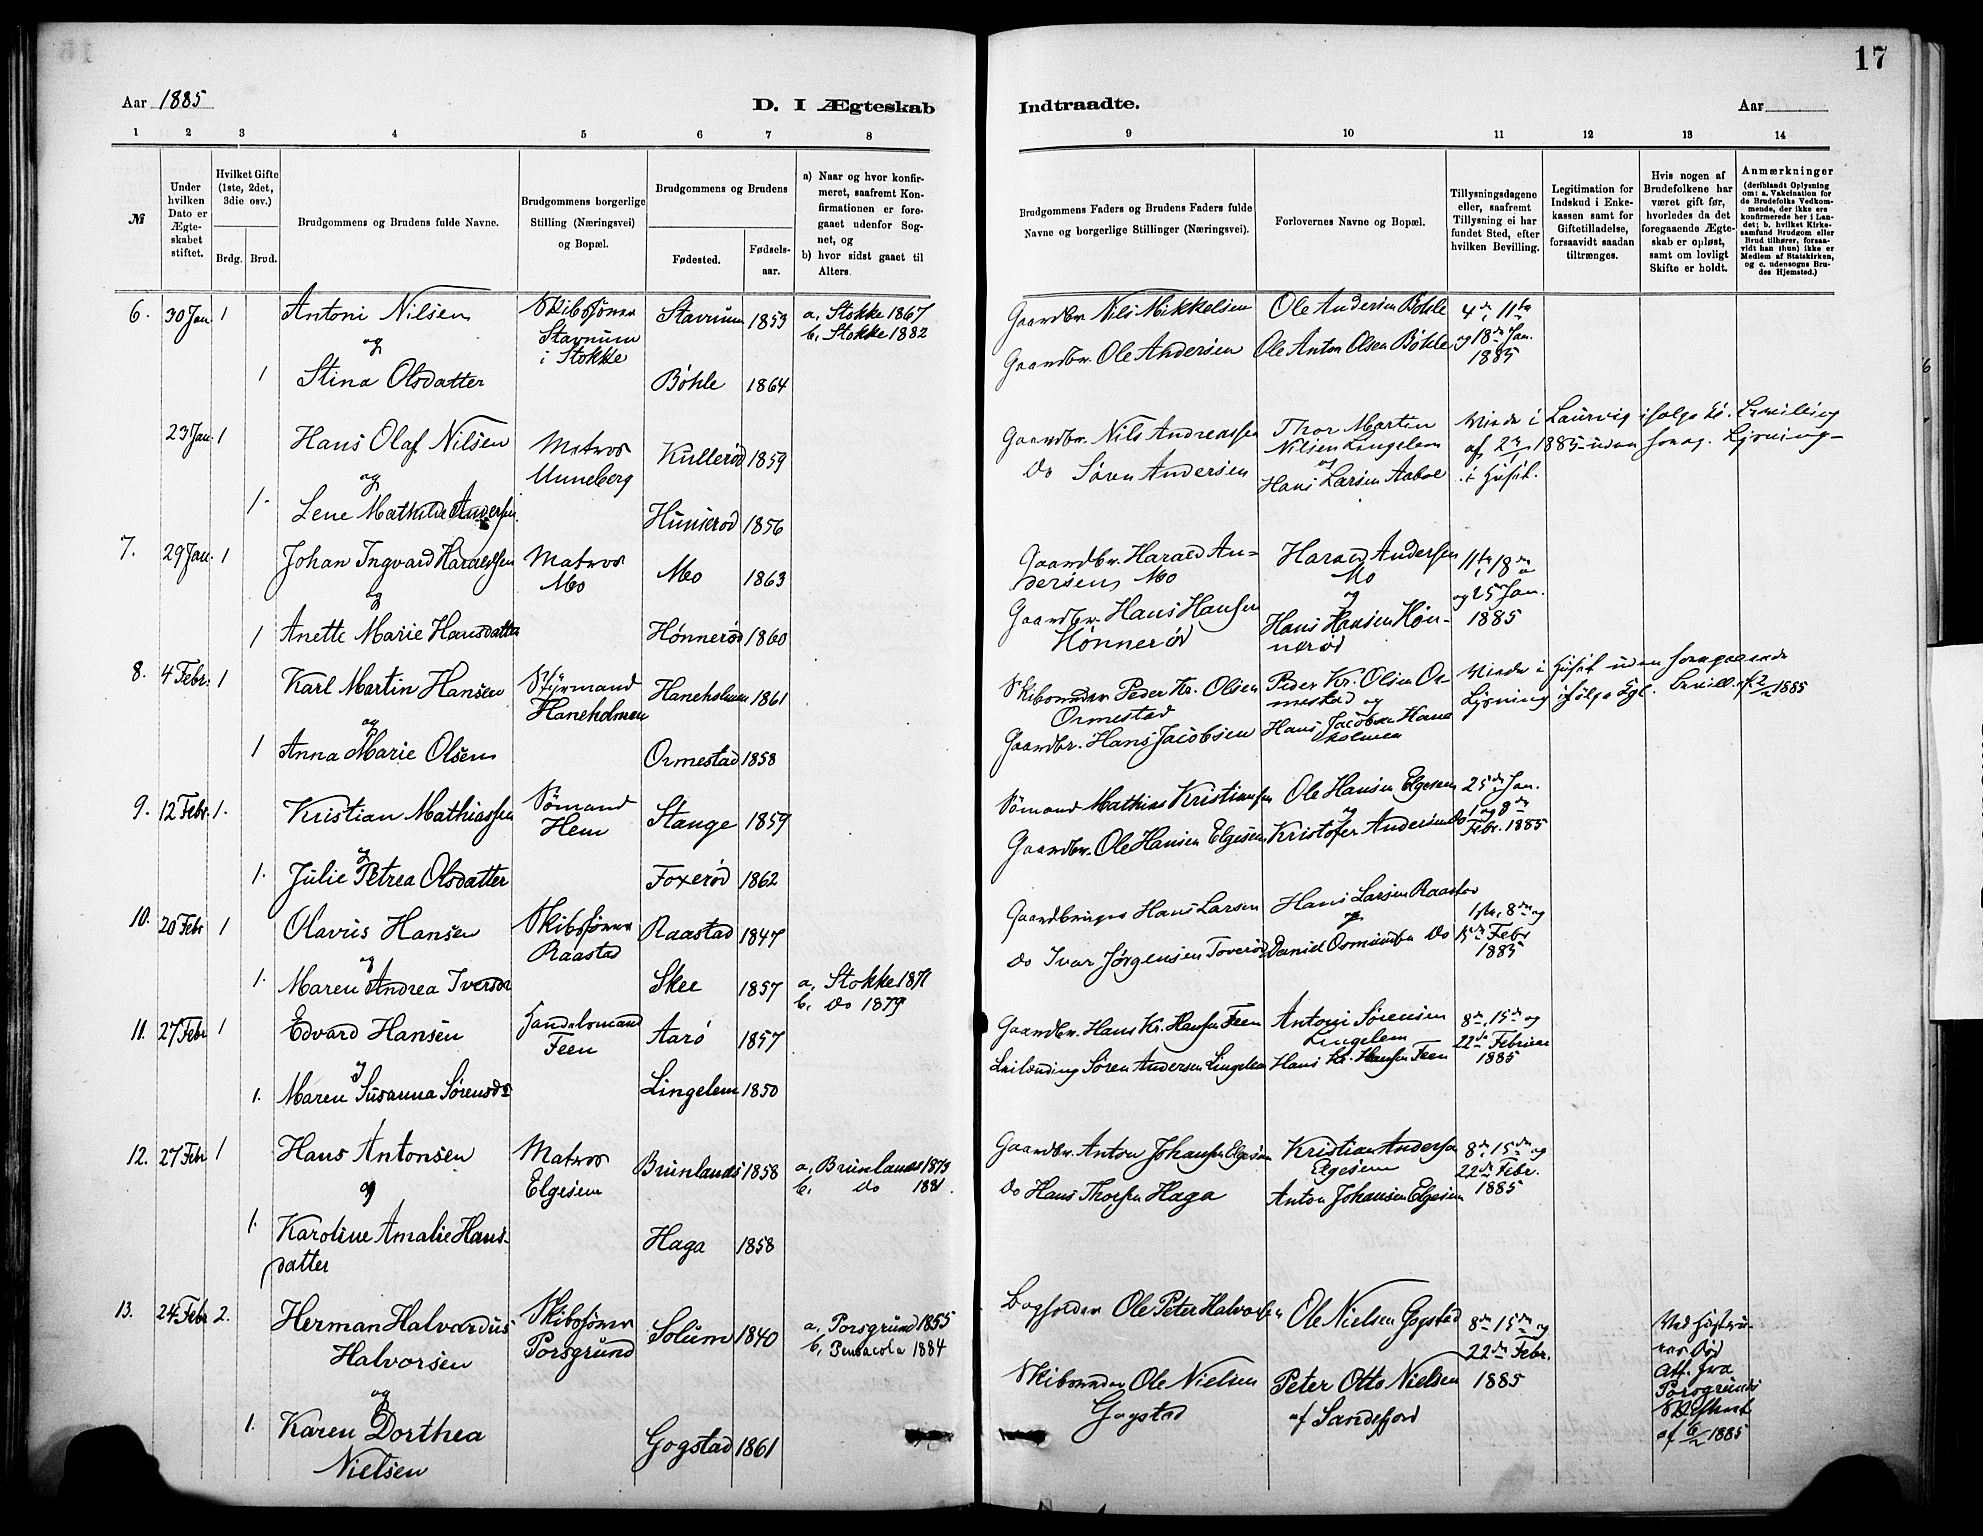 17
Aar 1885
D. I Ægteskab
Indtraadte.
Aar
1 2 3 4 5 6 7 8
9 10 11 12 13 14
№
Under hvilken Dato er Ægteskabet stiftet.
Hvilket Gifte (1ste, 2det, 3die osv.)
Brdg. Brud.
Brudgommens og Brudens fulde Navne.
Brudgommens borgerlige Stilling (Næringsvei) og Bopæl.
Brudgommens og Brudens
Fødested.
Fødsels-aar.
a) Naar og hvor konfir-
meret, saafremt Kon-
firmationen er fore-
gaaet udenfor Sog-
net, og
b) hvor sidst gaaet til
Alters.
Brudgommens Faders og Brudens Faders fulde
Navne og borgerlige Stillinger (Næringsvei).
Forlovernes Navne og Bopæl.
Tillysningsdagene
eller, saafremt
Tillysning ei har
fundet Sted, efter
hvilken Bevilling.
Legitimation for
Indskud i Enke-
kassen samt for
Giftetilladelse,
forsaavidt saadan
tiltrænges.
Hvis nogen af
Brudefolkene har
været gift før,
hvorledes da det
foregaaende Ægte-
skab er opløst,
samt om lovligt
Skifte er holdt.
Anmærkninger
(deriblandt Oplysning
om: a. Vakcination for
de Brudefolks Vedkom-
mende, der ikke ere
konfirmerede her i Lan-
det; b. hvilket Kirke-
samfund Brudgom eller
Brud tilhører, forsaa-
vidt han (hun) ikke er
Medlem af Statskirken,
og c. udensogns Bru-
des Hjemsted.)
6. 30 Jan. 1 Antoni Nilsen Skibstømr Stavnum 1853 a, Stokke 1867
og Stavnum b, Stokke 1882
i Stokke
1 Stina Olsdatter Bøhle 1864
Gaardbr. Nils Mikkelsen Ole Andersen Bøhle 4de, 11te
Gaardbr. Ole Andersen Ole Anton Olsen Bøhle og 18de Jan.
1885
23 Jan. 1 Hans Olaf Nilsen Matros Kullerød 1859
og Unneberg
1. Lene Mathilde Andersen Hunserød 1856
Gaardbr. Nils Andreassen Thor Martin Viede i Laurvig ifølge
Nilsen Lingelem af 2/1 1885 uden foreg. Lysning
Do Søren Andersen og
Hans Larsen Aaboe
7. 29 Jan. 1 Johan Ingvard Haraldsen Matros Mo 1863
og Mo
1 Anette Marie Hansdatter Hønnerød 1860
Gaardbr. Harald An- Harald Andersen 11te, 18de
dersen, Mo Mo og 25 Jan.
Gaardbr. Hans Hansen og 1885
Hønnerød Hans Hansen Høn-
nerød
8. 4 Febr. 1 Karl Martin Hansen Styrmand Haneholmen 1861
og Haneholmen
1 Anna Marie Olsen Ormestad 1858
Skibstømr Peder Kr. Olsen Peder Kr. Olsen Or- Viede i Huset uden foregaaende
Ormestad mestad og Lysning ifølge Kgl. Bevill. af 2/2 1885
Gaardbr. Hans Jacobsen Hans Jacobsen Hane
holmen
9. 12 Febr. 1. Kristian Mathiassen Sømand Stange 1859
og Hem
1. Julie Petrea Olsdatter Foxerød 1862
Sømand Mathias Kristiansen Ole Hansen Elgesem 25de Jan.
og 1 og 8de
Gaardbr. Ole Hansen Elgesem Kristofer Andersen Do Febr. 1885
10. 20 Febr 1 Olavus Hansen Skibstømr Raastad 1847
og Raastad
1. Maren Andrea Iversdr Skee 1857 a, Stokke 1871
b, Do 1879
Gaardbruger Hans Larsen Hans Larsen Raastad 1ste, 8de og
og 15de Febr
Do Ivar Jørgensen Toverød Daniel Do 1885
11. 27 Febr 1 Edvard Hansen Handelsmand Aarø 1857
og Feen
1. Maren Susanna Sørensdr Lingelem 1850
Gaardbr. Hans Kr. Hansen Feen Antoni Sørensen 8de, 15de og
Lingelem 22de Februar
Leilænding Søren Andersen Lingelem Hans Kr. Hansen Feen 1885
12. 27 Febr 1 Hans Antonsen Matros Brunlands 1858 a, Brunlands 1873
og Elgesem b, Do 1881.
1. Karoline Amalie Hans- Haga 1858
datter
Gaardbr. Anton Johansen Elgesem Kristian Andersen 8de, 15de og
Elgesem 22de Febr.
Do Hans Thorsen Haga Anton Johansen Elgesem 1885
13. 24 Febr 2. Herman Halvardus Skibstømr Solum 1840 a, Porsgrund 1855
Halvorsen Porsgrund b, Pensacola 1884
og
1. Karen Dorthea Gogstad 1861
Nielsen
Bogholder Ole Peter Halvorsen Ole Nielsen Gogstad 8de, 15de og
22de Febr.
Skibstømr Ole Nielsen Peter Otto Nielsen 1885
Gogstad af Sandefjord
Ved Hustru-
ens Død
Att. fra
Porsgrunds
Skifteret
af 6/2 1885